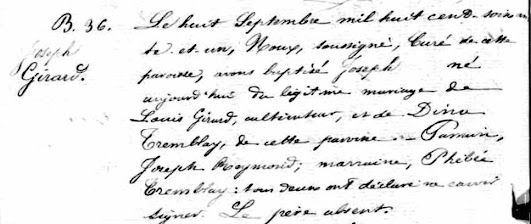 B. 36.
Joseph
Girard.
Le huit Septembre mil huit cent soixan
te et un, Nous, soussigné, Curé de cette
paroisse, avons baptisé Joseph né
aujourd'hui du légitime mariage de
Louis Girard, cultivateur, et de Dina
Tremblay, de cette paroisse. Parrain,
Joseph Raymond; marraine, Phébée
Tremblay: tous deux ont déclaré ne savoir
signer. Le père absent.